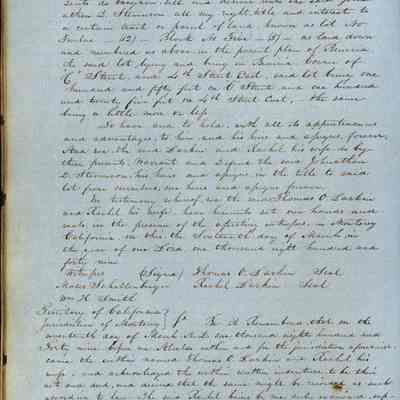 sents do bargain, sell and devise unto the said Jona-
athan D. Stevenson all my right, title and interest to
a certain tract or parcel of land, known as lot No
Twelve - 12 - Block No Five - 5 - as laid down
and numbered as above in the present plan of Benicia
the said lot, lying and being in Benicia Corner of
C Street, and 4th Street East, said lot being one
hundred and fifty feet on C Street and one hundred
and twenty five feet on 4th Street East, - the same
being a little more or less
To have and to hold, with all its appurtenances
and advantages, to him and his heirs and assigns, forever,
And we, the said Larkin and Rachel his wife do by
these presents, Warrant and Defend the said Jonathan
D. Stevenson, his heirs and assigns in the title to said
lot from ourselves, our heirs and assigns forever,
In testimony whereof, we the said Thomas O. Larkin
and Rachel his wife, have hereunto set our hands and
seals, in the presence of the witnesses, in Monterey
California on this the day of March, in
the year of our Lord one thousand eight hundred and
forty nine
Witnesses (Signed) Thomas O. Larkin Seal
Moses Schallenberger Rachel Larkin Seal
Wm H. Smith
Territory of California
Jurisdiction of Monterey Be it Remembered that on the
day of March A.D. one thousand eight hundred and
Forty nine before an Alcalde within and for the jurisdiction aforesaid,
came the within named Thomas O Larkin and Rachel his
wife, and acknowledged the within written indenture to be their
act and deed, and desired that the same might be recorded as such
according to law - The said Rachel being by me